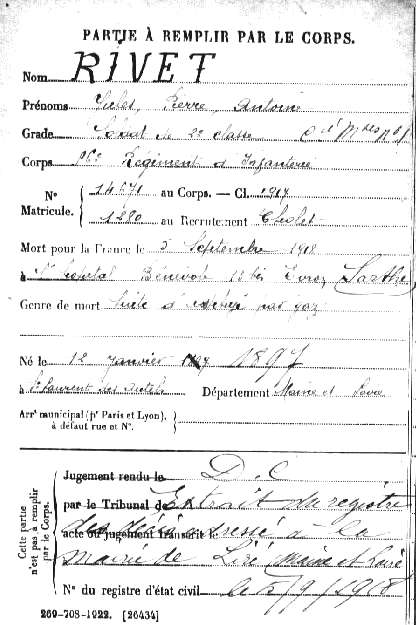 PARTIE À REMPLIR PAR LE CORPS.
Nom RIVET
Prénoms Pierre, Antoine
Grade Soldat de 2e classe
Corps Régiment d'Infanterie
Nº Matricule. 14671 au Corps. — Cl. 1917
1280 au Recrutement Cholet
Mort pour la France le 5 Septembre 1918
à l'hopital Bénévole Sarthe
Genre de mort Suite d' par gaz
Né le 12 Janvier 1897
à St Laurent des Autels Département Maine et Loire
Arrt municipal (pr Paris et Lyon), à défaut rue et Nº.
Cette partie n'est pas à remplir par le Corps.
Jugement rendu le D.C
par le Tribunal de Extrait du registre
acte ou jugement transcrit le des décès adressé à la
mairie de Liré Maine et Loire
Nº du registre d'état civil le 5/9/1918
269-708-1922. [26434]